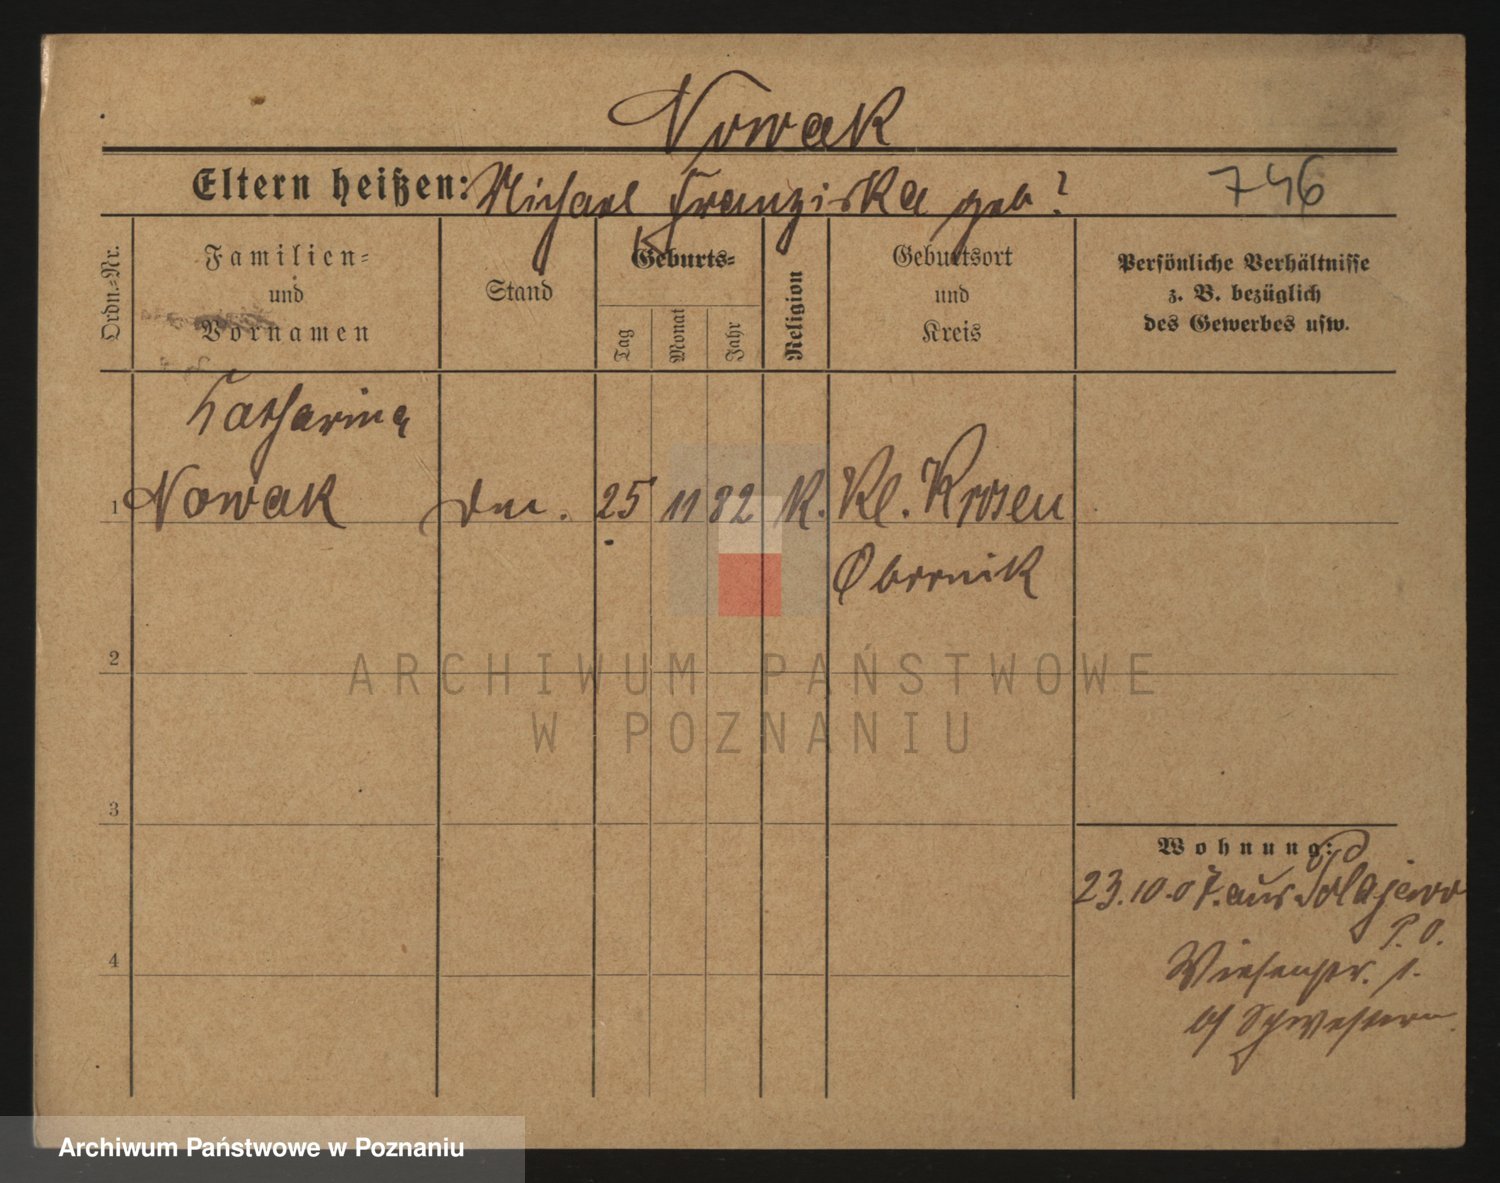 Nowak
Eltern heißen: Michael Franziska geb ?
746
Ordn.=Nr.
Familien=
und
Vornamen
Stand
Geburts=
Tag
Monat
Jahr
Religion
Geburtsort
und
Kreis
Persönliche Verhältnisse
z. B. bezüglich
des Gewerbes usw.
Katharina
1 Nowak 25 11 82 K. Kl. Krosen
Obornik
2
3
4
Wohnung:
23.10.07. aus Polajewo
P. O.
Wiesenstr. 1.
b/ Schwestern
ARCHIWUM PAŃSTWOWE
W POZNANIU
Archiwum Państwowe w Poznaniu